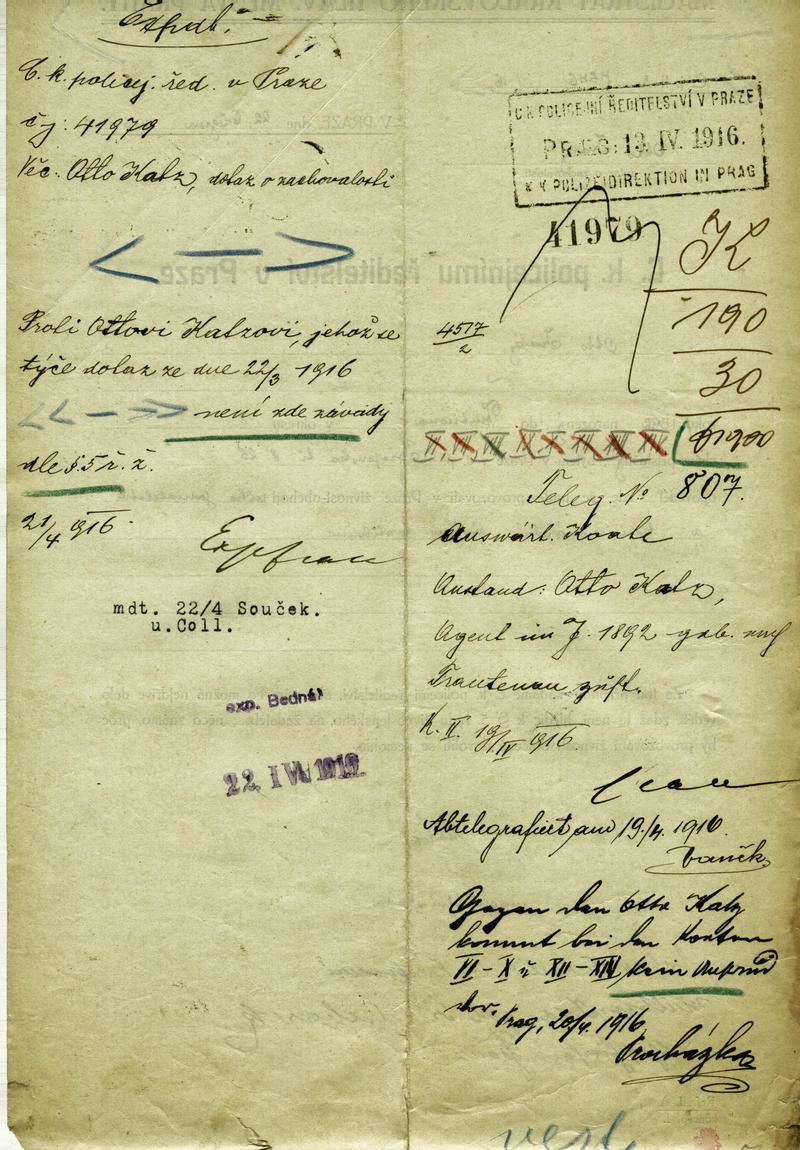 Expdt.
C. k. policej. řed. v Praze
čj: 41979
Věc: Otto Katz, dotaz o zachovalosti
Proti Ottovi Katzovi, jehož se
týče dotaz ze dne 22/3 1916
není zde závady
dle § 5 ř. ž.
21/4 1916.
mdt. 22/4 Souček.
u.Coll.
exp. Bednář
22. IV. 1916
C. K. POLICEJNÍ ŘEDITELSTVÍ V PRAZE
PRÆS: 13. IV. 1916.
K. K. POLIZEIDIREKTION IN PRAG
41979
K
190
30
4517/2
61900
Teleg. No 807.
Auswärt. Konte
Anstand: Otto Katz,
Agent im J. 1892 geb. nach
Trautenau zust.
K. II. 19/IV 1916
Abtelegrafiert am 19./4. 1916.
Vaněk
Gegen den Otto Katz
kommt bei den Konten
VI - X u XII - XIV kein Anstand
vor.
Prag, 20/4. 1916
Procházka
vert